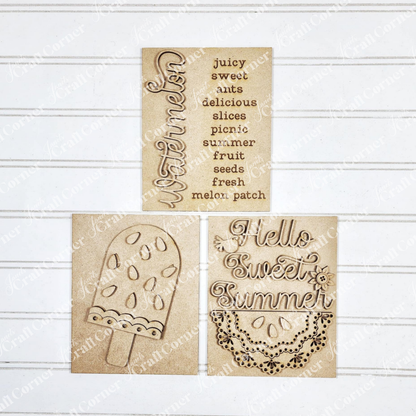 Watermelon
juicy
sweet
ants
delicious
slices
picnic
summer
fruit
seeds
fresh
melon patch
Hello
Sweet
Summer
CraftCorner